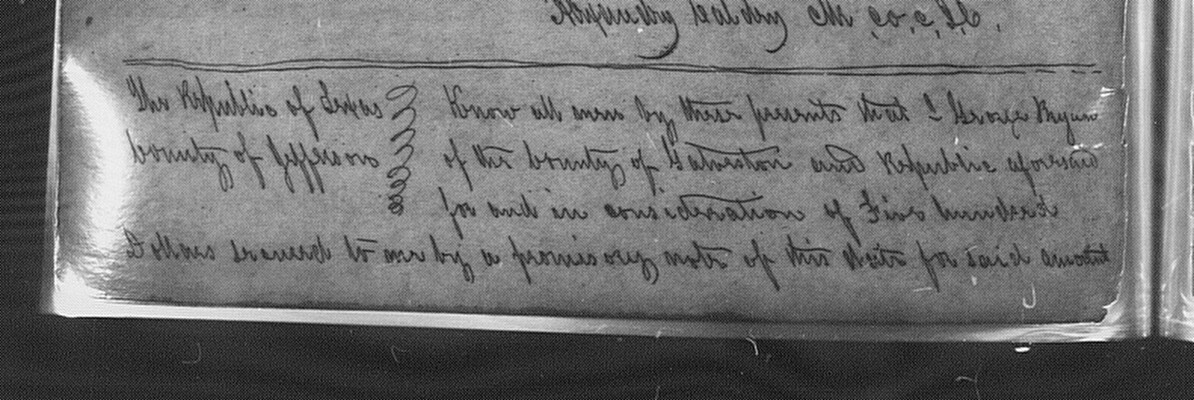 Calday Clk, Co, C, J, C,
The Republic of Texas Know all men by these presents that I George Bryan
County of Jefferson of the County of Galveston and Republic aforesaid
for and in consideration of Five hundred
Dollars secured to me by a promissory note of this date for said amount